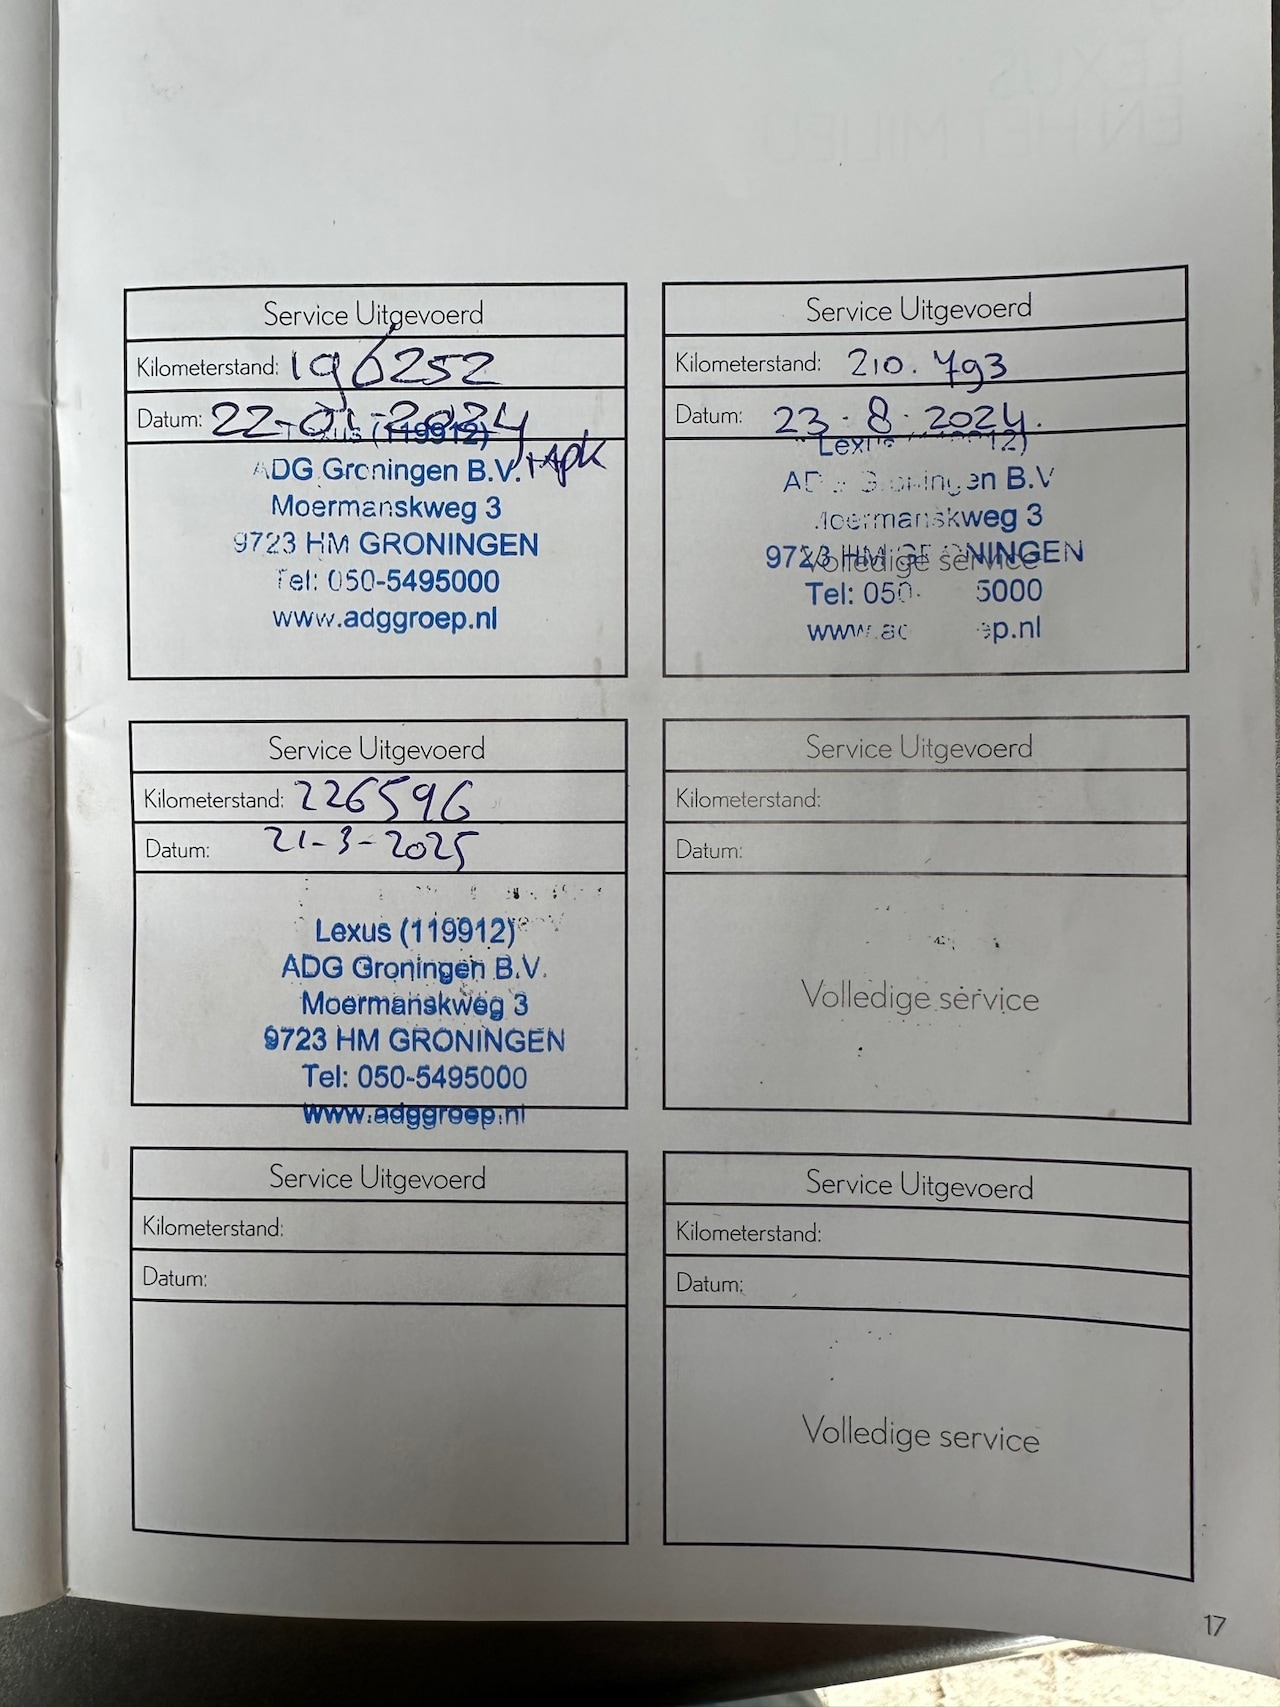 Service Uitgevoerd
Kilometerstand: 196252
Datum: 22-01-2024
Lexus (119912)
+Apk
ADG Groningen B.V.
Moermanskweg 3
9723 HM GRONINGEN
Tel: 050-5495000
www.adggroep.nl
Service Uitgevoerd
Kilometerstand: 210.793
Datum: 23-8-2024.
Lexus (119912)
ADG Groningen B.V
Moermanskweg 3
9723 HM GRONINGEN
Volledige service
Tel: 050- 5000
www.adggroep.nl
Service Uitgevoerd
Kilometerstand: 226596
Datum: 21-3-2025
Lexus (119912)
ADG Groningen B.V.
Moermanskweg 3
9723 HM GRONINGEN
Tel: 050-5495000
www.adggroep.nl
Service Uitgevoerd
Kilometerstand:
Datum:
Volledige service
Service Uitgevoerd
Kilometerstand:
Datum:
Service Uitgevoerd
Kilometerstand:
Datum:
Volledige service
17